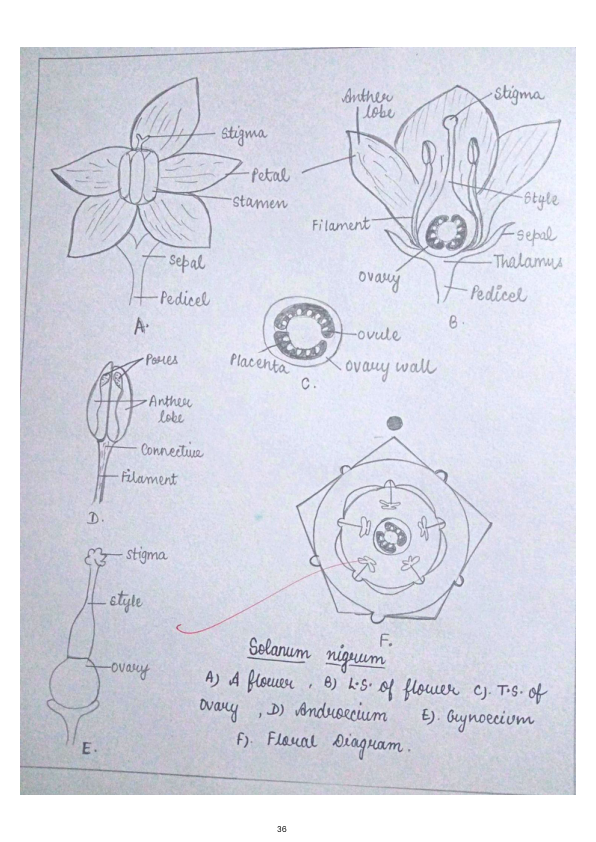 Stigma
Petal
Stamen
Sepal
Pedicel
A.
Anther
lobe
Stigma
Style
Filament
Sepal
Thalamus
Ovary
Pedicel
B.
Ovule
Placenta
Ovary wall
C.
Pores
Anther
lobe
Connective
Filament
D.
Stigma
Style
Ovary
E.
F.
Solanum nigrum
A) A flower , B) L.S. of flower C). T.S. of
Ovary , D) Androecium E). Gynoecium
F). Floral Diagram.
36